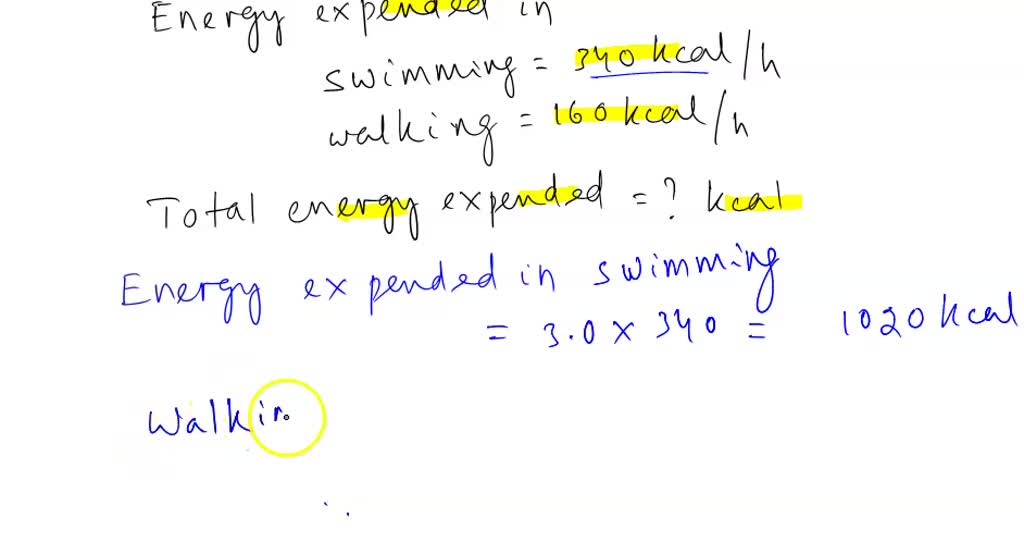 Energy expended in
swimming = 340 kcal/h
walking = 160 kcal/h
Total energy expended = ? kcal
Energy expended in swimming
= 3.0 x 340 = 1020 kcal
Walkin